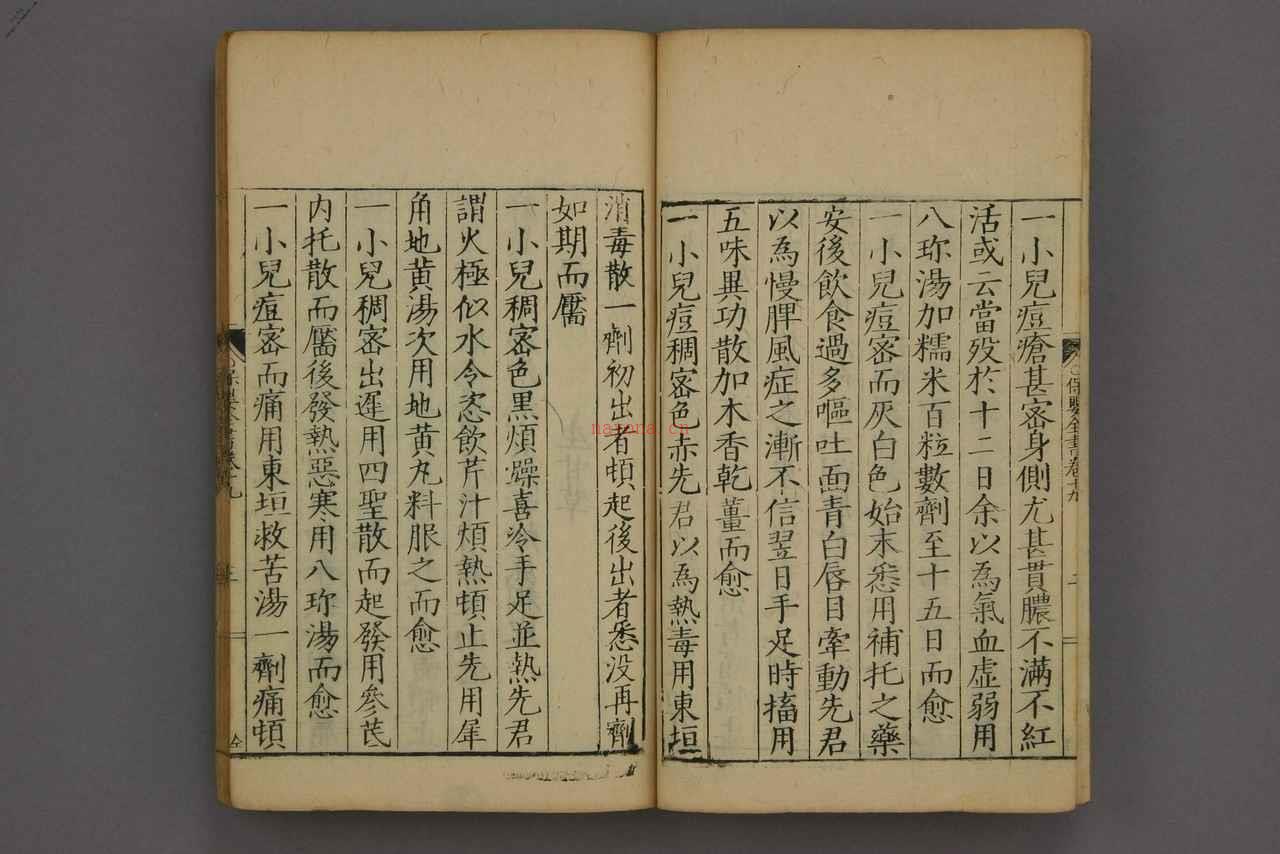 一小兒痘瘡甚密身側尤甚貫膿不滿不紅
活或云當歿於十二日余以為氣血虛弱用
八珎湯加糯米百粒數劑至十五日而愈
一小兒痘密而灰白色始末悉用補托之藥
安後飲食過多嘔吐面青白唇目牽動先君
以為慢脾風症之漸不信翌日手足時搐用
五味異功散加木香乾薑而愈
一小兒痘稠密色赤先君以為熱毒用東垣
消毒散一劑初出者頓起後出者悉没再劑
如期而靨
一小兒稠密色黑煩燥喜冷手足並熱先君
謂火極似水令恣飲芹汁煩熱頓止先用犀
角地黄湯次用地黄丸料服之而愈
一小兒稠密出遲用四聖散而起發用參芪
内托散而靨後發熱惡寒用八珎湯而愈
一小兒痘密而痛用東垣救苦湯一劑痛頓
保嬰全書卷十九
nayona.cn